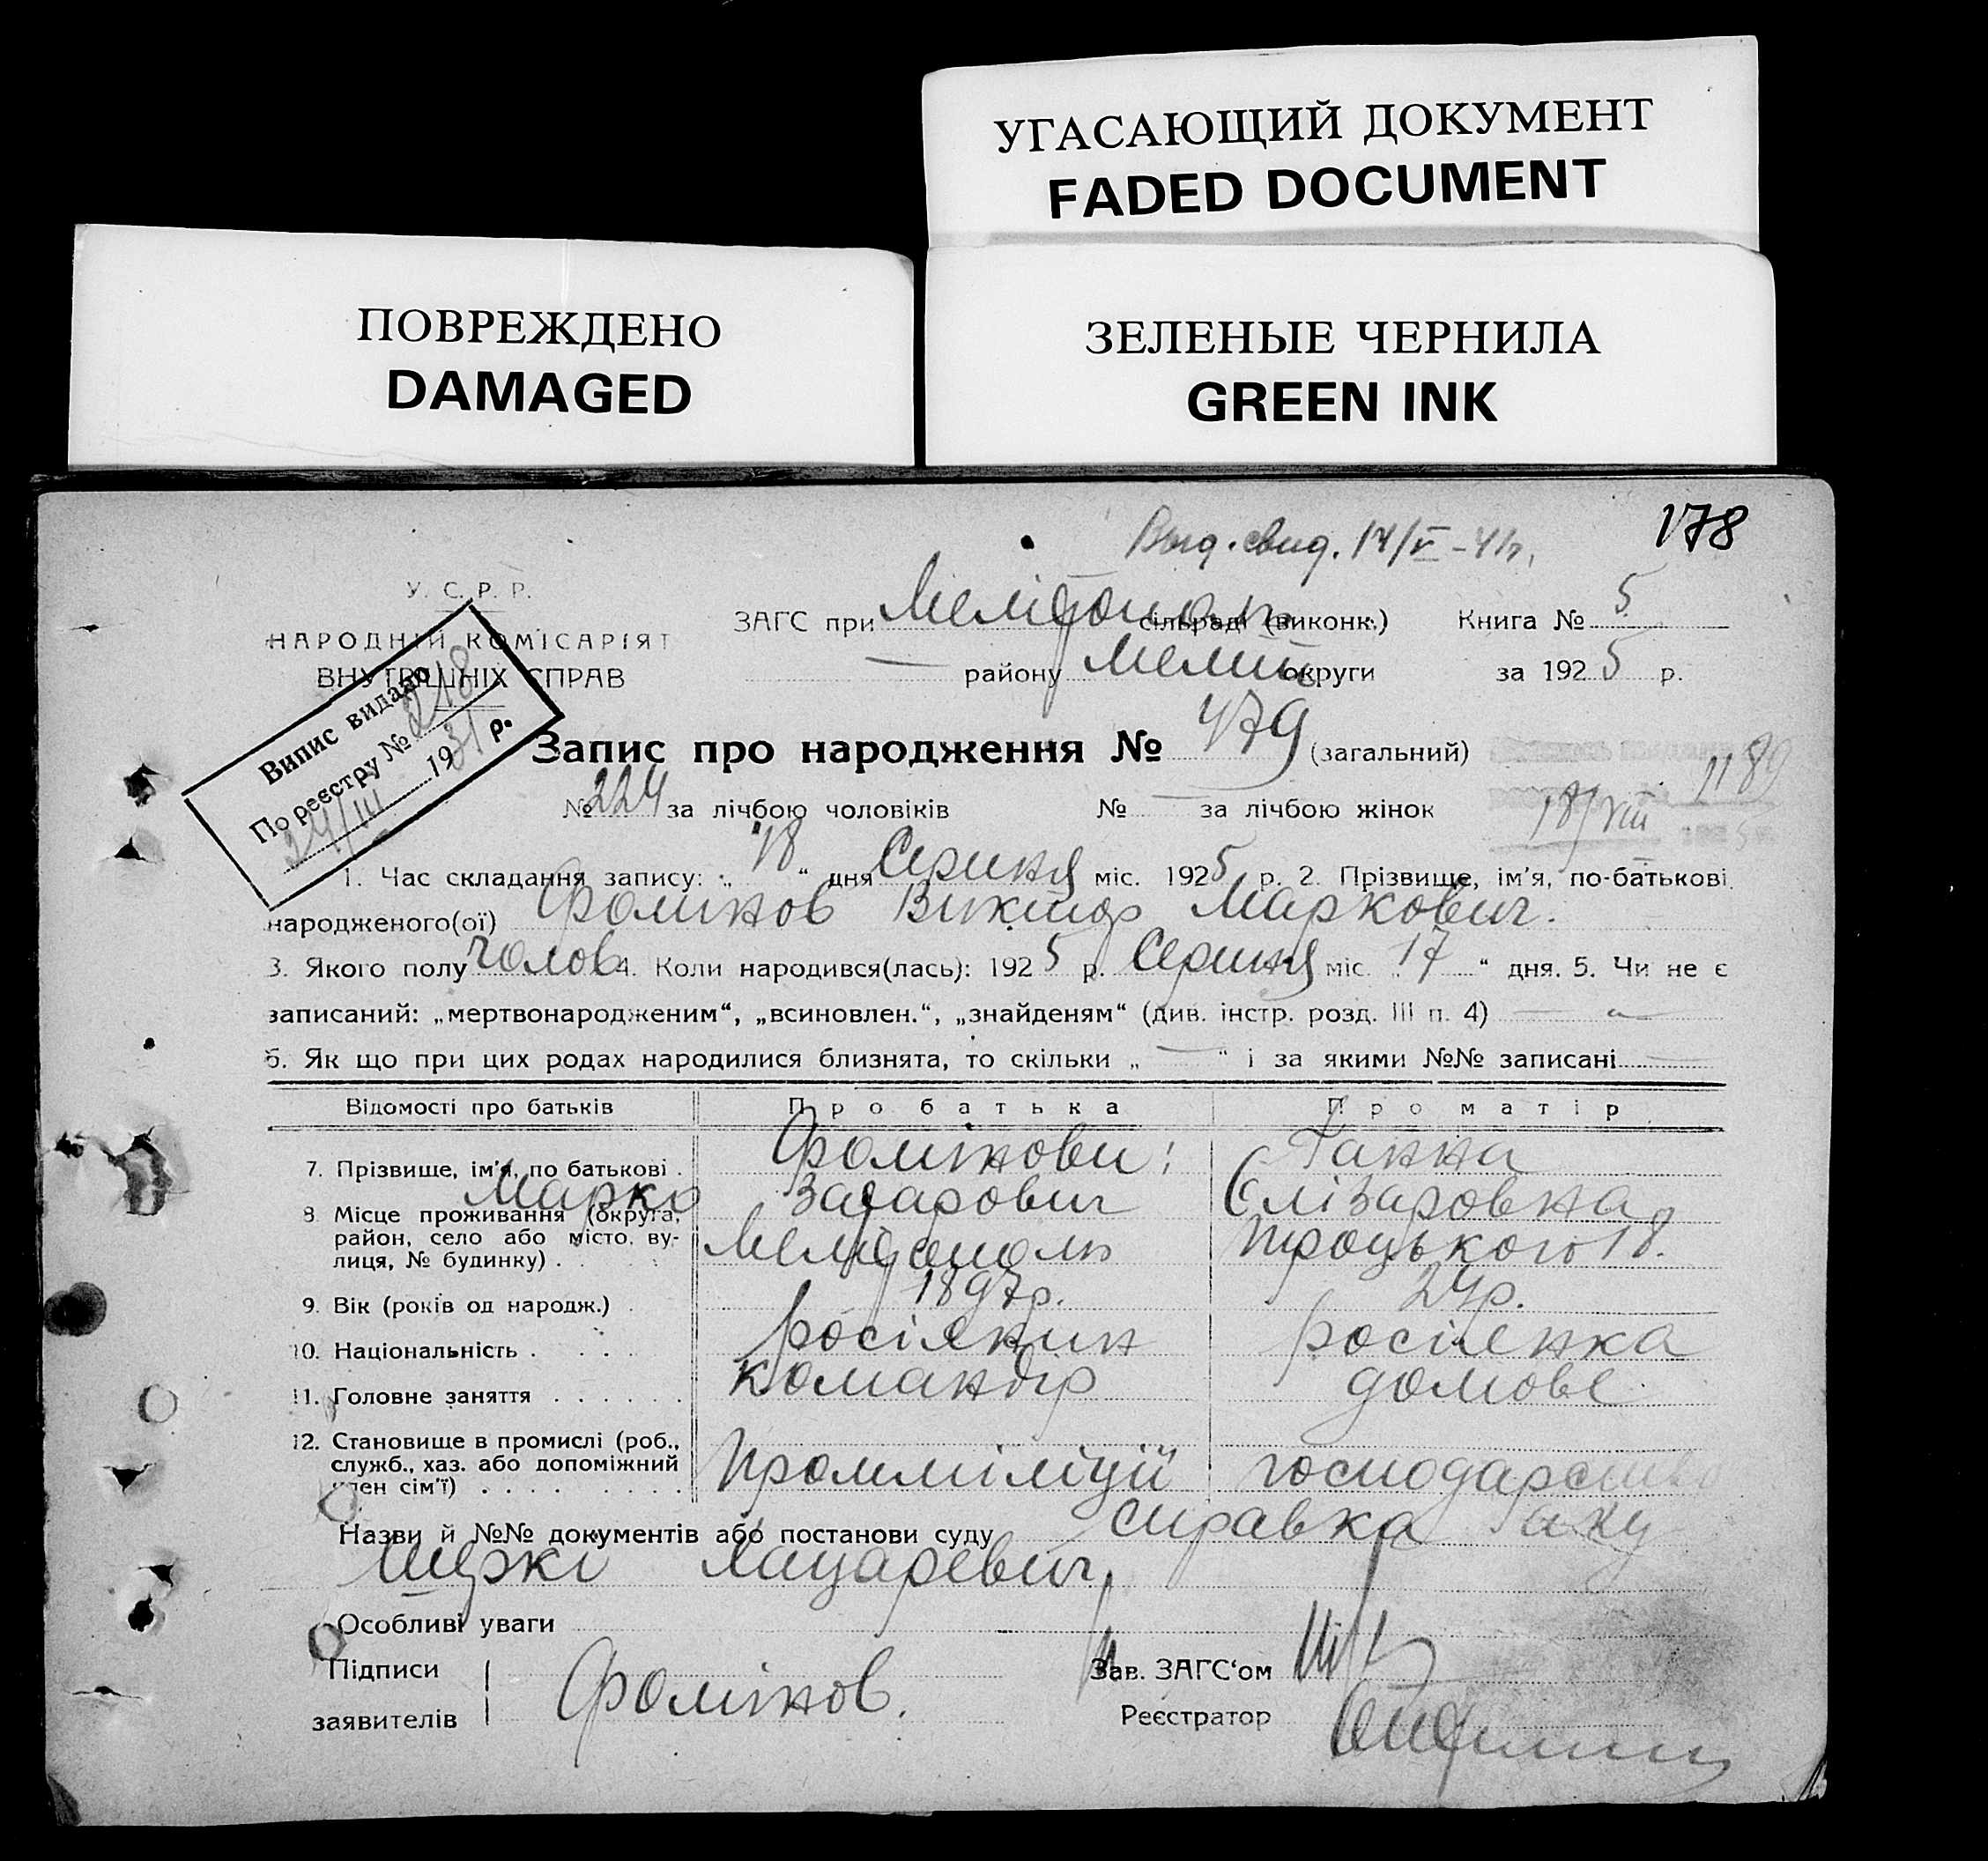 УГАСАЮЩИЙ ДОКУМЕНТ
FADED DOCUMENT
ПОВРЕЖДЕНО
DAMAGED
ЗЕЛЕНЫЕ ЧЕРНИЛА
GREEN INK
178
Выд. свид. 14/V - 41г.
У. С. Р. Р.
НАРОДНІЙ КОМІСАРІЯТ
ВНУТРІШНІХ СПРАВ
ЗАГС при Мелітополь сільраді (виконк.) Книга № 5
— району Меліт округи за 1925 р.
Випис видано
По реєстру № 218
24/III 1931 р.
Запис про народження № 479 (загальний)
1189
№ 224 за лічбою чоловіків № — за лічбою жінок
18/VIII
1. Час складання запису: „18“ дня Серпня міс. 1925 р. 2. Прізвище, ім'я, по-батькові
народженого(ої) Фомінов Віктор Маркович.
3. Якого полу Чолов 4. Коли народився(лась): 1925 р. Серпня міс. „17“ дня. 5. Чи не є
записаний: „мертвонародженим“, „всиновлен.“, „знайденям“ (див. інстр. розд. III п. 4) —
6. Як що при цих родах народилися близнята, то скільки „—“ і за якими №№ записані —
Відомості про батьків Про батька Про матір
7. Прізвище, ім'я, по батькові . Фомінови: Ганна
Марко Захарович Єлізаровна
8. Місце проживання (округа, район, село або місто, вулиця, № будинку) . Мелітополь Троцького 18.
9. Вік (років од народж.) . 1897р. 24р.
10. Національність . росіянин росіянка
11. Головне заняття . . . . . . командір домове
12. Становище в промислі (роб., служб., хаз. або допоміжний член сім'ї) . . . . Промміліції господарство
Назви й №№ документів або постанови суду справка аку
шерки Лацаревич
Особливі уваги
Підписи
заявителів Фомінов.
Зав. ЗАГС'ом
Реєстратор